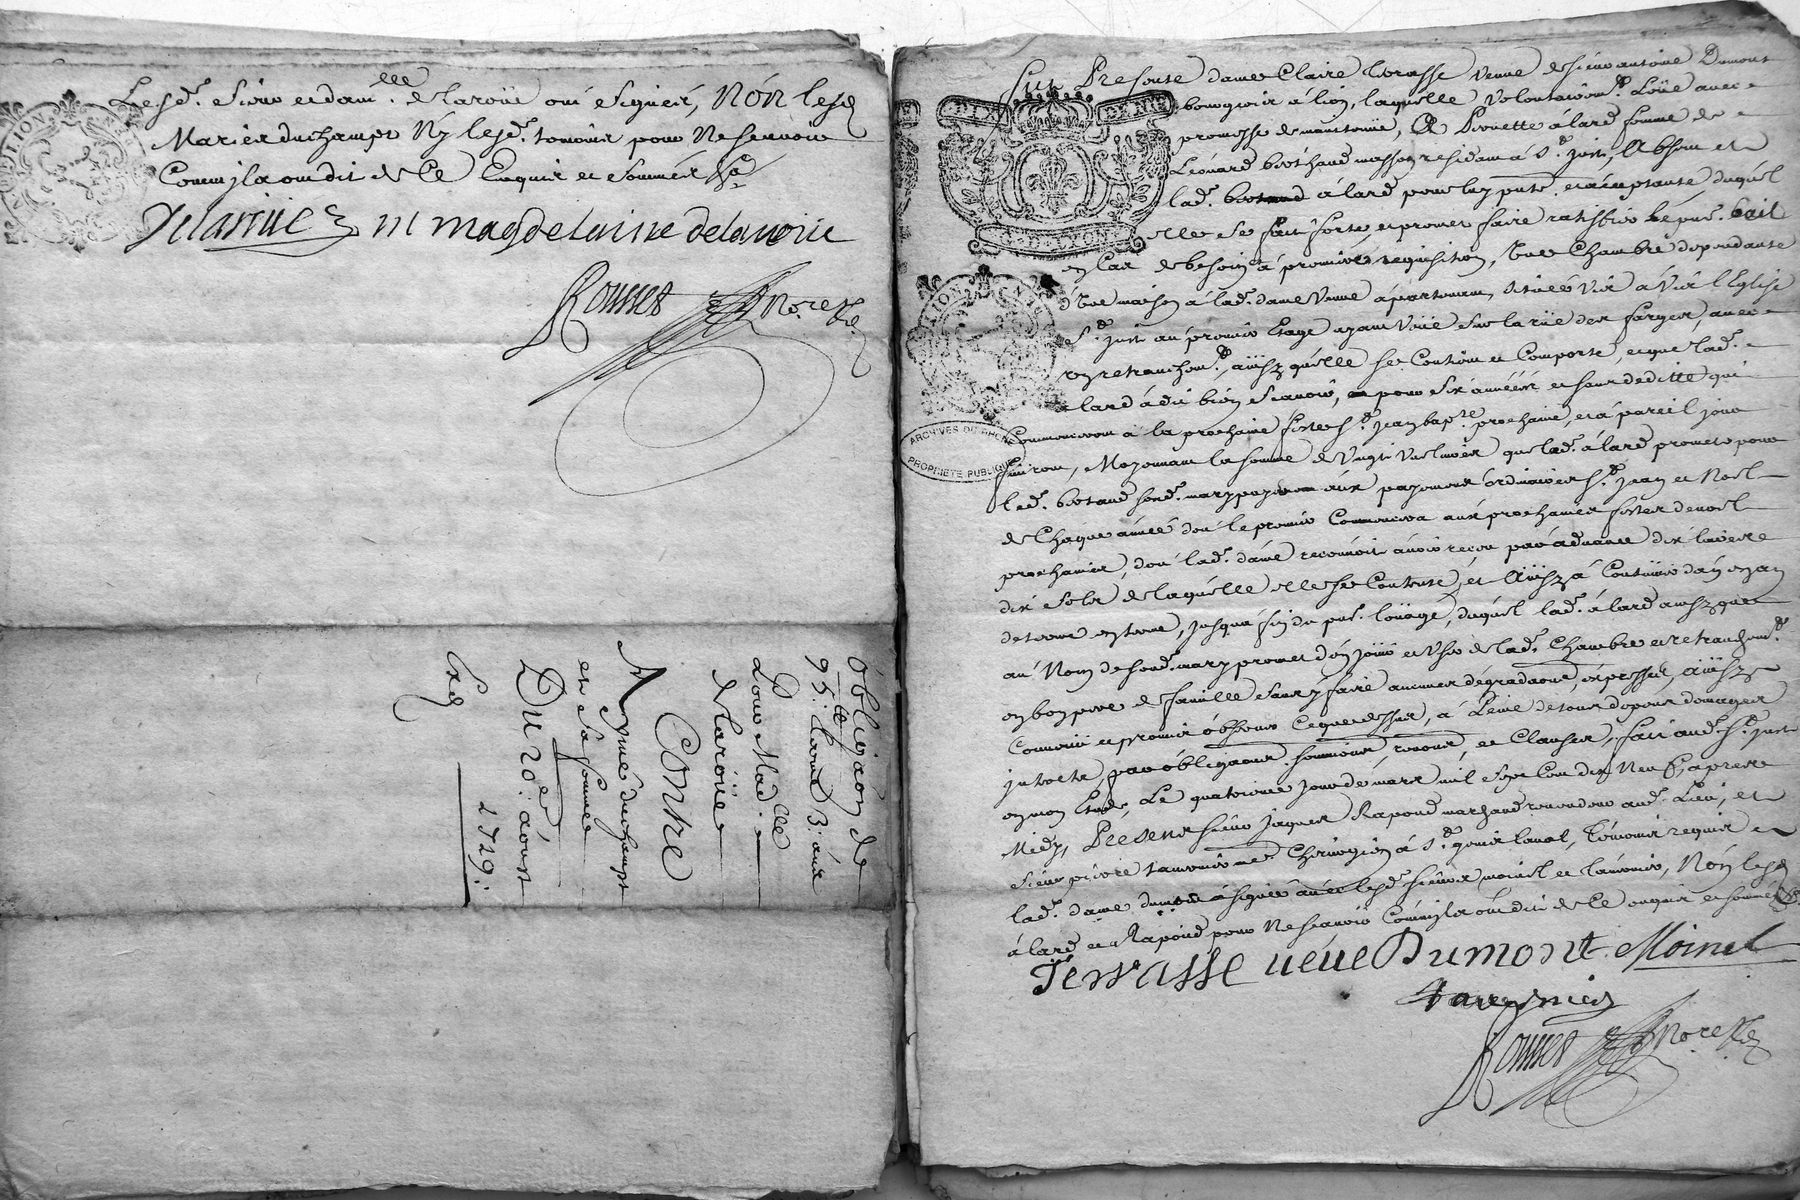 Lesd. sieur et dam.lle delaroüe ont signés, Non lesd
Mariés duchampt Ny lesd. temoins pour Ne scavoir
Comm'ils ont dit de Ce Enquis et sommés
Delaroüe m magdelaine delaroüe
Rousset Nore
obligãon de
95.ll tant 3: aux
Pour Mad.lle
delaroüe
Contre
Aymé duchampt
et sa femme
Du 20.e aoust
1729:
Exp
ARCHIVES DU RHONE
PROPRIETE PUBLIQUE
Fut Presente dame Claire terasse veuve de sieur antoine Dumont
bourgeois à lion, laquelle volontairem.t Loüe avec
promesse de maintenüe, A Pierrette alard femme de
Léonard berthaud masson residant à S.t just, Absent et
lad. alard pour luy pnte. et acceptante, duquel
elle se fait forte, et promet faire ratiffier le pnt. bail
en Cas de besoin à premiere requisition, Une Chambre dependante
d'Une maison à lad. dame veuve apartenant, scituée Vis à Vis l'Eglise
S.t just au premier Etage ayant Vüe sur la rüe des farges, avec
un retranchem.t, ainsy qu'elle se Contient et Comporte, et que lad.
alard à dit bien scavoir, pour six années et sans deditte qui
Commenceront à la prochaine feste S.t jean bap.te prochaine, et à pareil jour
finiront, Moyennant la somme de Vingt Un livres que lad. alard promet pour
led. bertaud sond. mary payer aux payements ordinaires S.t jean et Noel
de Chaque année dont le premier Commencera aux prochaines festes de noel
prochaines, dont lad. dame reconnoit avoir receu par advance dix livres
dix sols de laquelle elle se Contente, et Ainsy à Continüer d'an en an
de terme en terme, jusqu'à fin du pnt. loüage, duquel lad. alard ainsy que
au Nom de sond. mary promet d'en joüir et User de lad. Chambre et retranchem.t
en bon pere de famille sans y faire aucunes degradaõns, expresses, ainsy
Convenu et promis observer Ce que dessus, à Peine de tous depens domages
interets, par obligaõns soumissions renons, et Clauses, fait aud. S.t just
en mon Etude, Le quatorzie jour de mars mil sept Cent dix Neuf, apres
Midy, Presents sieur jaques Rapoud marchand revendeur aud. Lieu, et
sieur pierre tavernier Me Chirurgien à S.t genis laval, temoins requis et
lad. dame dumont à signée avec lesd. sieurs moinel et tavernier, Non lesd
alard et Rapoud pour Ne scavoir Comm'ils ont dit de Ce enquis et sommés
Terrasse veuve Dumont Moinel
tavernier
Rousset Nore